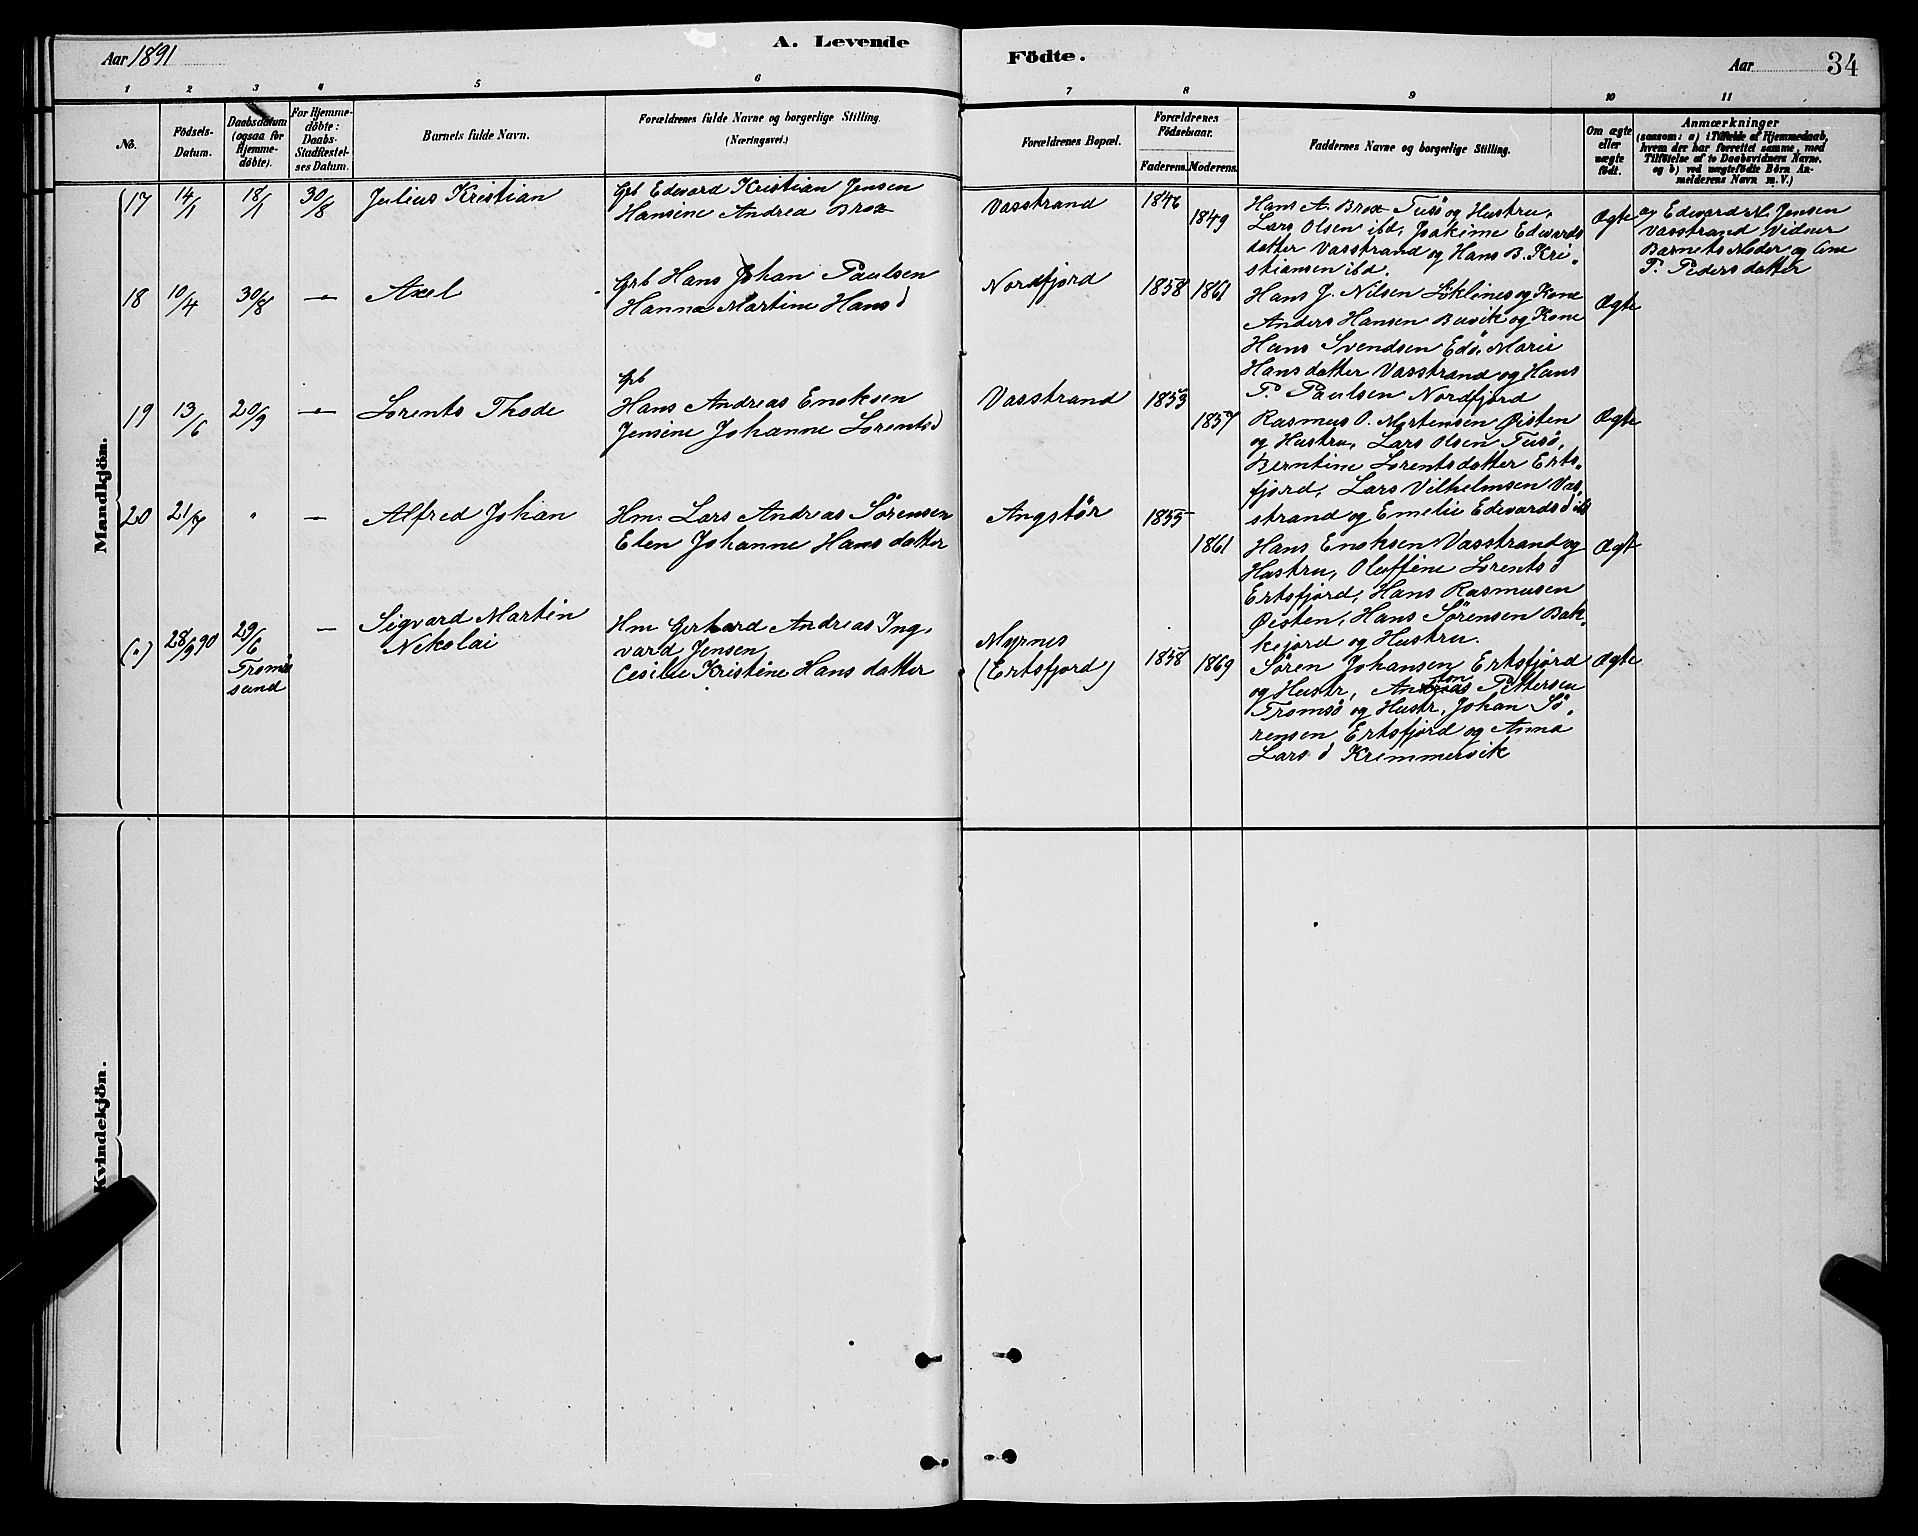 Aar 1891
A. Levende
Födte.
Aar
34
1 2 3 4 5 6 7 8 9 10 11
No.
Födsels-
Datum.
Daabsdatum
(ogsaa for
Hjemme-
döbte).
For Hjemme-
döbte:
Daabs-
Stadfæstel-
ses Datum.
Barnets fulde Navn.
Forældrenes fulde Navne og borgerlige Stilling.
(Næringsvei.)
Forældrenes Bopæl.
Forældrenes
Födselsaar.
Faderens. Moderens.
Faddernes Navne og borgerlige Stilling.
Om ægte
eller
uægte
födt.
Anmærkninger
(saasom: a) i Tilfælde af Hjemmedaab,
hvem der har forrettet samme, med
Tilföielse af to Daabsvidners Navne,
og b) ved uægtefödte Börn An-
melderens Navn m. V.)
Mandkjön.
17 14/1 18/1 30/8 Julius Kristian
Grb Edvard Kristian Jensen
Hansine Andrea Brox
Vasstrand 1846 1849
Hans A. Brox Tusö og Hustru,
Lars Olsen ibd, Joakime Edvards
datter Vasstrand og Hans B. Kri-
stiansen ibd.
Ægte
af Edvard M. Jensen
Vasstrand Vidner
Barnets Moder og Ane
P. Pedersdatter
18 10/4 30/8 — Axel
Grb Hans Johan Paulsen
Hanna Martine Hansd
Nordfjord 1858 1861
Hans J. Nilsen Löklines og Kone
Anders Hansen Buvik og Kone
Hans Svendsen Edö, Marie
Hansdatter Vasstrand og Hans
P. Paulsen Nordfjord
Ægte
19 13/6 20/9 — Lorents Thode
Grb
Hans Andreas Enoksen
Jensine Johanne Lorentsd
Vasstrand 1853 1857
Rasmus O. Mortensen Øisten
og Hustru, Lars Olsen Tusö,
Berntine Lorentsdatter Erts-
fjord, Lars Vilhelmsen Vas-
strand og Emelie Edvardsd ibd
Ægte
20 21/7 " — Alfred Johan
Hm. Lars Andreas Sörensen
Elen Johanne Hansdatter
Angstör 1855 1861
Hans Enoksen Vasstrand og
Hustru, Oluffine Lorentsd
Ertsfjord, Hans Rasmusen
Øisten, Hans Sörensen Bak-
kejord og Hustru.
Ægte
(") 28/9 90 29/6
Tromsö
sund
— Sigvard Martin
Nikolai
Hm Gerhard Andreas Ing-
vard Jensen,
Cesilie Kristine Hansdatter
Myrnes
(Ertsfjord)
1858 1869
Sören Johansen Ertsfjord
og Hustr, Anton Pettersen
Tromsö og Hustr, Johan Sö-
rensen Ertsfjord og Anna
Larsd Kremmervik
Ægte
Kvindekjön.